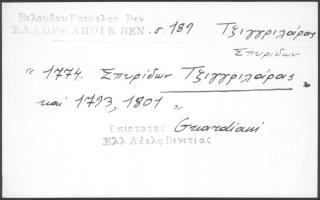 Βελουδου Επιπλεον Βεν
ΕΛΛ ΟΡΘ ΑΠΟΙΚ ΒΕΝ. σ. 189 Τζιγγριλάρας
Σπυρίδων
"1774. Σπυρίδων Τζιγγριλάρας
καί 1793, 1801"
Επιστατης Guardiani
Ελλ Αδελφ Βενετιας